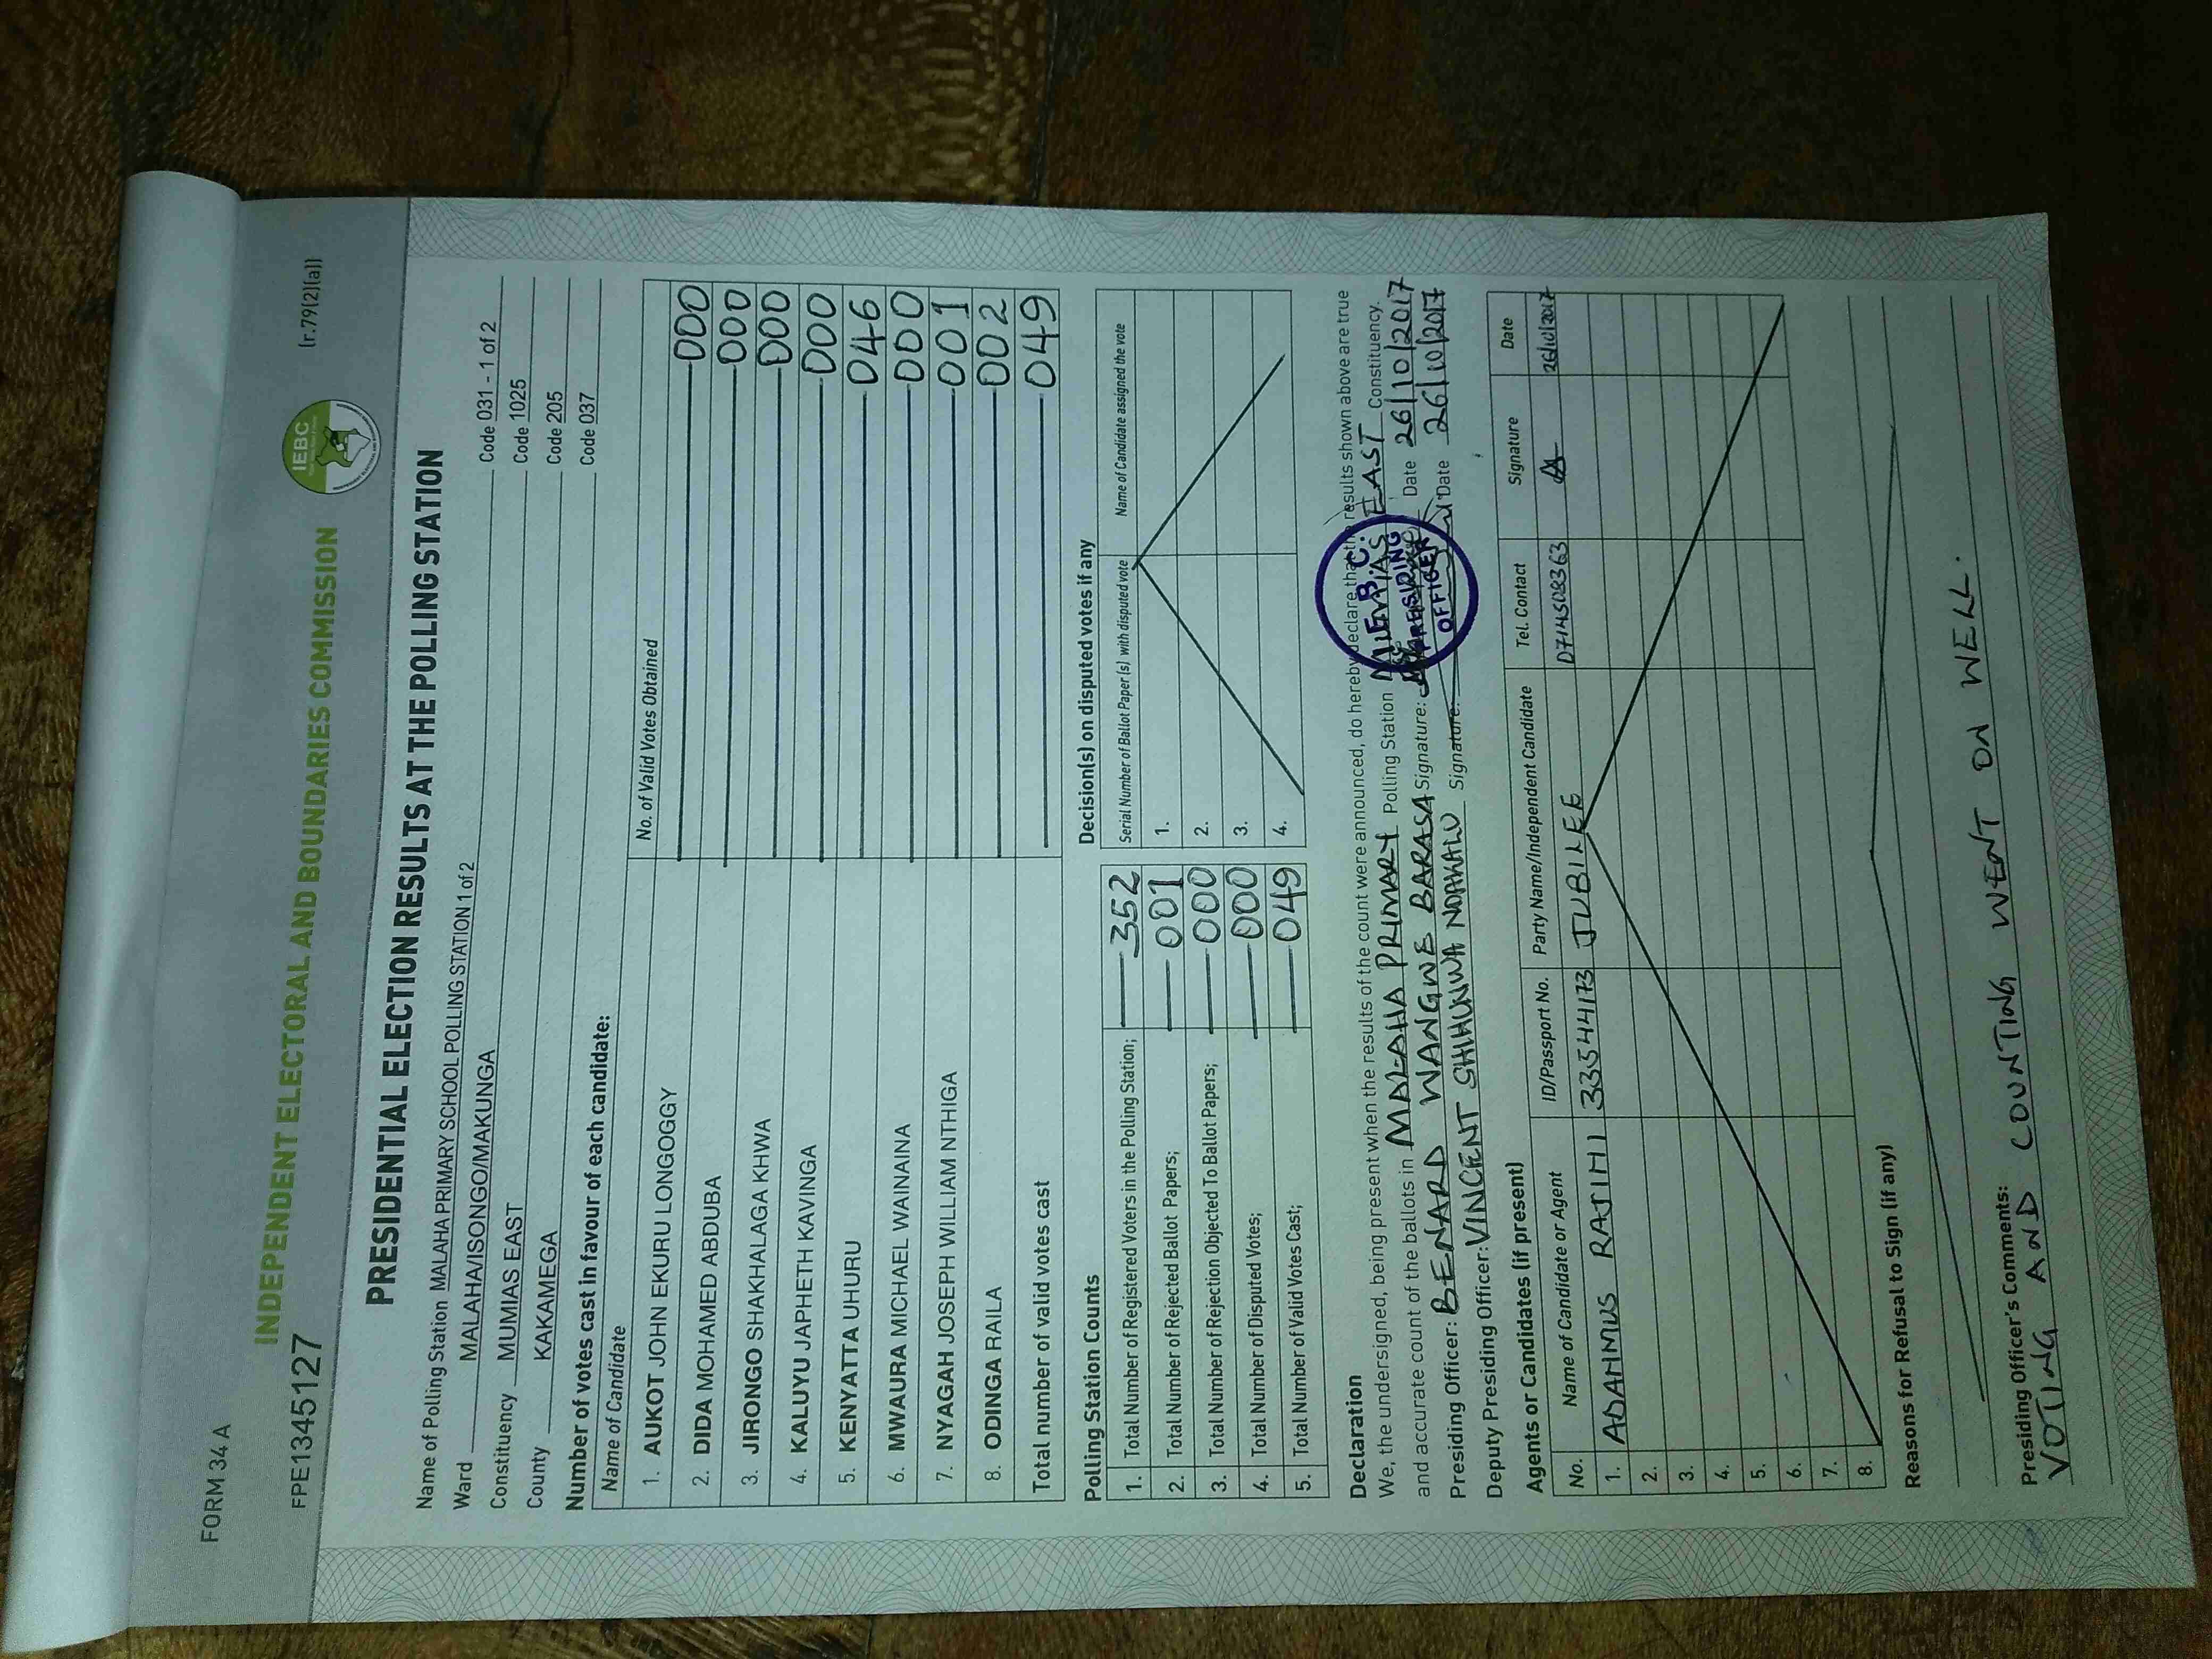 FORM 34 A
INDEPENDENT ELECTORAL AND BOUNDARIES COMMISSION
IEBC
FPE1345127
(r.79(2)(a))
PRESIDENTIAL ELECTION RESULTS AT THE POLLING STATION
Name of Polling Station MALAHA PRIMARY SCHOOL POLLING STATION 1 of 2 Code 031 - 1 of 2
Ward MALAHA/ISONGO/MAKUNGA Code 1025
Constituency MUMIAS EAST Code 205
County KAKAMEGA Code 037
Number of votes cast in favour of each candidate:
Name of Candidate No. of Valid Votes Obtained
1. AUKOT JOHN EKURU LONGOGGY 000
2. DIDA MOHAMED ABDUBA 000
3. JIRONGO SHAKHALAGA KHWA 000
4. KALUYU JAPHETH KAVINGA 000
5. KENYATTA UHURU 046
6. MWAURA MICHAEL WAINAINA 000
7. NYAGAH JOSEPH WILLIAM NTHIGA 001
8. ODINGA RAILA 002
Total number of valid votes cast 049
Polling Station Counts
1. Total Number of Registered Voters in the Polling Station; 352
2. Total Number of Rejected Ballot Papers; 001
3. Total Number of Rejection Objected To Ballot Papers; 000
4. Total Number of Disputed Votes; 000
5. Total Number of Valid Votes Cast; 049
Decision(s) on disputed votes if any
Serial Number of Ballot Paper (s) with disputed vote Name of Candidate assigned the vote
1.
2.
3.
4.
Declaration
We, the undersigned, being present when the results of the count were announced, do hereby declare that the results shown above are true
and accurate count of the ballots in MALAHA PRIMARY Polling Station MUMIAS EAST Constituency.
Presiding Officer: BENARD WANGWE BARASA Signature: Date 26/10/2017
Deputy Presiding Officer: VINCENT SHIHUNWA Signature: Date 26/10/2017
I.E.B.C.
PRESIDING
OFFICER
Agents or Candidates (if present)
No. Name of Candidate or Agent ID/Passport No. Party Name/Independent Candidate Tel. Contact Signature Date
1. ADAHMUS RAJIHI 33544173 JUBILEE 0714508363 26/10/2017
2.
3.
4.
5.
6.
7.
8.
Reasons for Refusal to Sign (if any)
Presiding Officer's Comments:
VOTING AND COUNTING WENT ON WELL.